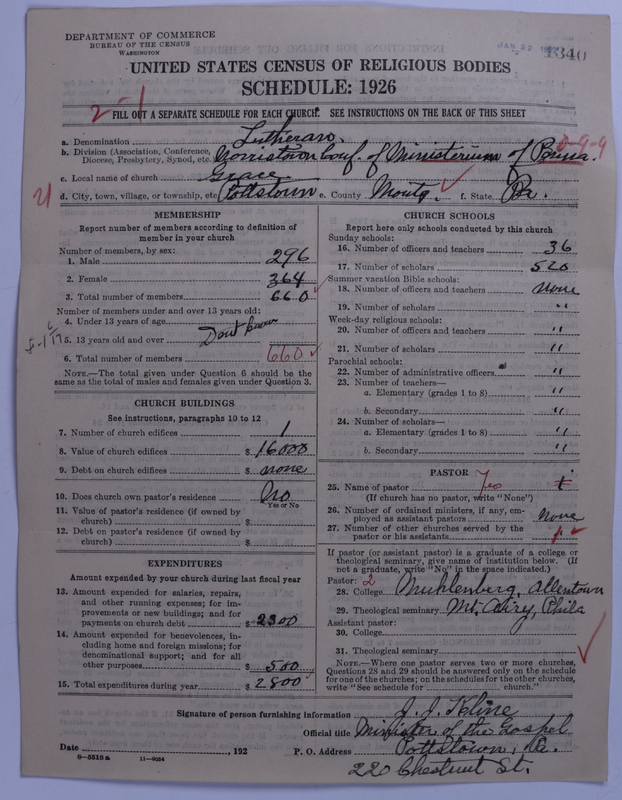 DEPARTMENT OF COMMERCE
BUREAU OF THE CENSUS
WASHINGTON
JAN 22
1340
UNITED STATES CENSUS OF RELIGIOUS BODIES
SCHEDULE: 1926
2-1
FILL OUT A SEPARATE SCHEDULE FOR EACH CHURCH. SEE INSTRUCTIONS ON THE BACK OF THIS SHEET
a. Denomination Lutheran.
b. Division (Association, Conference, Diocese, Presbytery, Synod, etc. Norristown Conf. of Ministerium of Penna.
c. Local name of church Grace
d. City, town, village, or township, etc Pottstown e. County Montg. f. State Pa.
MEMBERSHIP
Report number of members according to definition of
member in your church
Number of members, by sex:
1. Male 296
2. Female 364
3. Total number of members 660
Number of members under and over 13 years old:
4. Under 13 years of age
5. 13 years old and over Dont know
6. Total number of members 660
NOTE.—The total given under Question 6 should be the
same as the total of males and females given under Question 3.
CHURCH BUILDINGS
See instructions, paragraphs 10 to 12
7. Number of church edifices 1
8. Value of church edifices $ 16000
9. Debt on church edifices $ none
10. Does church own pastor's residence No
Yes or No
11. Value of pastor's residence (if owned by
church) $
12. Debt on pastor's residence (if owned by
church) $
EXPENDITURES
Amount expended by your church during last fiscal year
13. Amount expended for salaries, repairs,
and other running expenses; for im-
provements or new buildings; and for
payments on church debt $ 2300
14. Amount expended for benevolences, in-
cluding home and foreign missions; for
denominational support; and for all
other purposes $ 500
15. Total expenditures during year $ 2800
CHURCH SCHOOLS
Report here only schools conducted by this church
Sunday schools:
16. Number of officers and teachers 36
17. Number of scholars 520
Summer vacation Bible schools:
18. Number of officers and teachers none
19. Number of scholars "
Week-day religious schools:
20. Number of officers and teachers "
21. Number of scholars "
Parochial schools:
22. Number of administrative officers "
23. Number of teachers—
a. Elementary (grades 1 to 8) "
b. Secondary "
24. Number of scholars—
a. Elementary (grades 1 to 8) "
b. Secondary "
PASTOR
25. Name of pastor Yes
(If church has no pastor, write "None")
26. Number of ordained ministers, if any, em-
ployed as assistant pastors none
27. Number of other churches served by the
pastor or his assistants
If pastor (or assistant pastor) is a graduate of a college or
theological seminary, give name of institution below. (If
not a graduate, write "No" in the space indicated.)
Pastor: 2
28. College Muhlenberg, Allentown
29. Theological seminary Mt. Airy, Phila
Assistant pastor:
30. College
31. Theological seminary
NOTE.—Where one pastor serves two or more churches,
Questions 28 and 29 should be answered only on the schedule
for one of the churches; on the schedules for the other churches,
write "See schedule for church."
Signature of person furnishing information J. J. Kline
Official title Minister of the Gospel
Date , 192 P. O. Address Pottstown, Pa.
8—5518a 11—9054
220 Chestnut St.